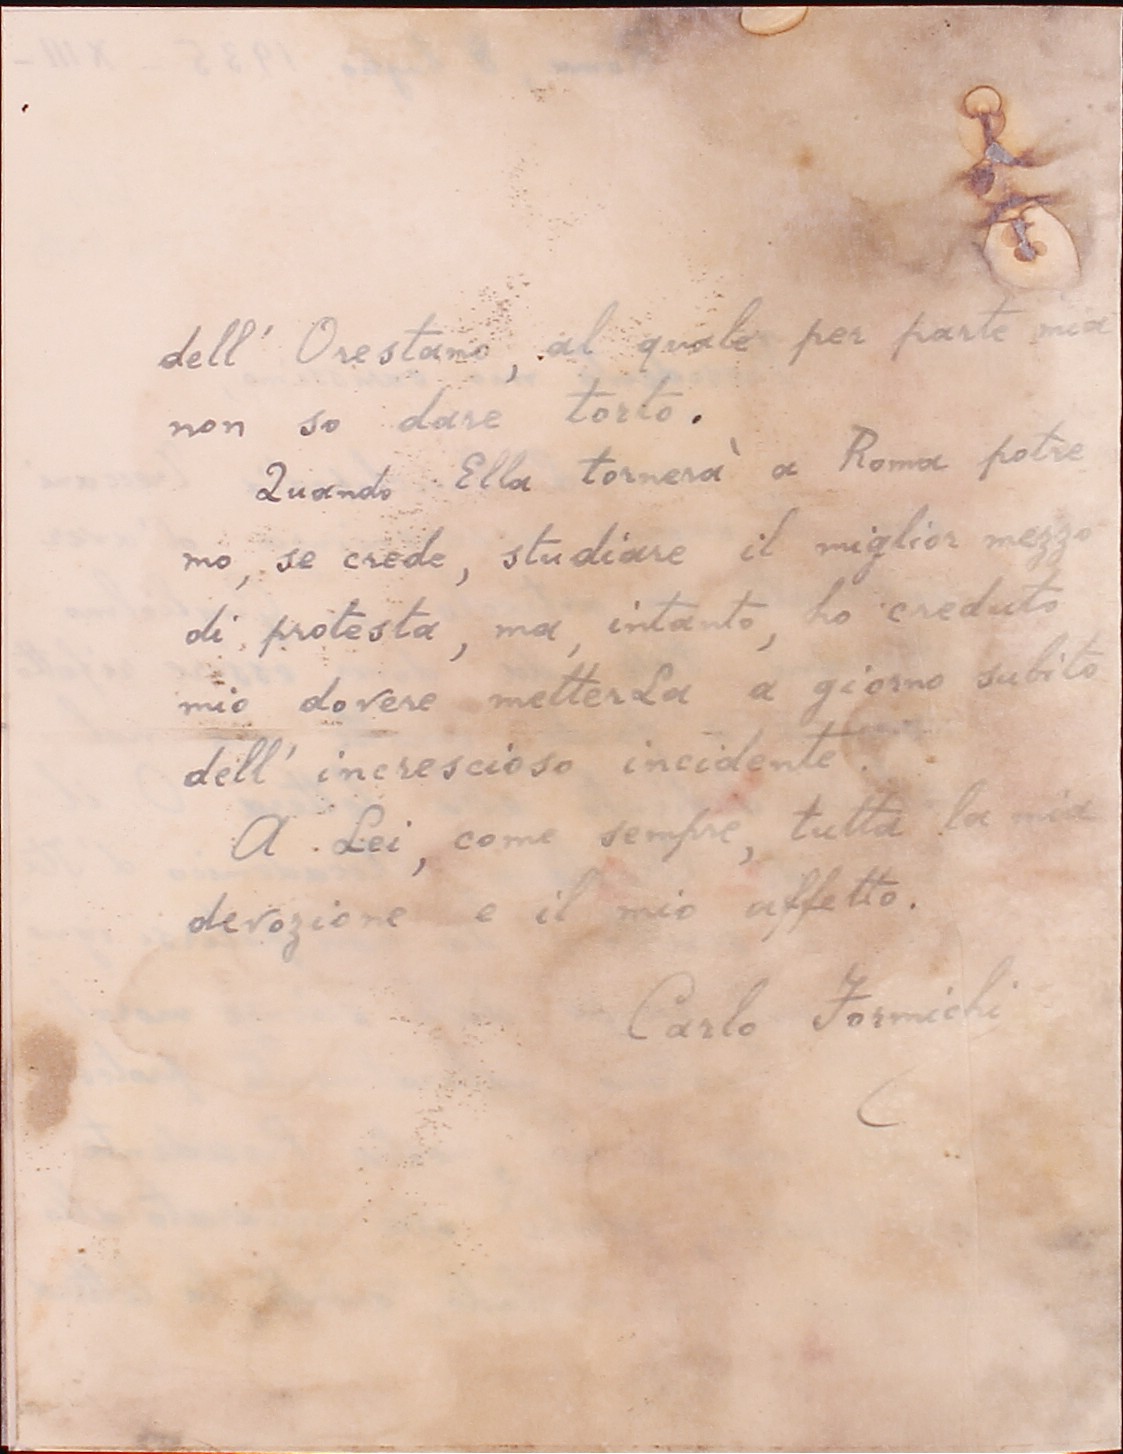 dell' Orestano, al quale per parte mia
non so dare torto.
Quando Ella tornerà a Roma potre
mo, se crede, studiare il miglior mezzo
di protesta, ma, intanto, ho creduto
mio dovere metterLa a giorno subito
dell' increscioso incidente.
A Lei, come sempre, tutta la mia
devozione e il mio affetto.
Carlo Formichi